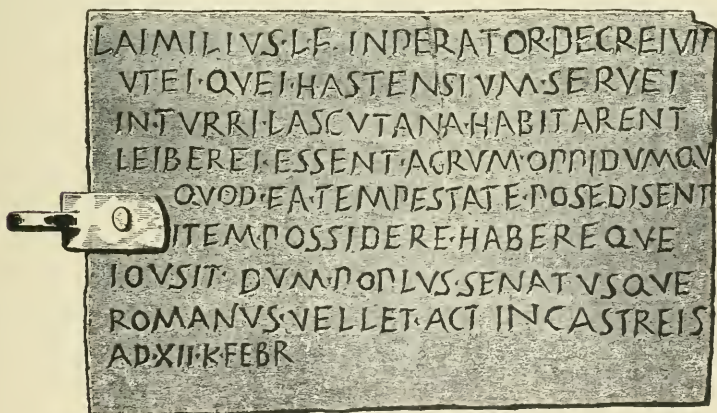 LAIMILIVS·L·F· INPERATOR·DECREIVIT
VTEI·QVEI·HASTENSIVM·SERVEI
IN·TVRRI·LASCVTANA·HABITARENT
LEIBEREI·ESSENT·AGRVM·OPPIDVMQV
QVOD·EA·TEMPESTATE·POSEDISENT
ITEM·POSSIDERE·HABEREQVE
IOVSIT· DVM·POPLVS·SENATVSQVE
ROMANVS·VELLET·ACT·IN CASTREIS
AD·XII·K·FEBR